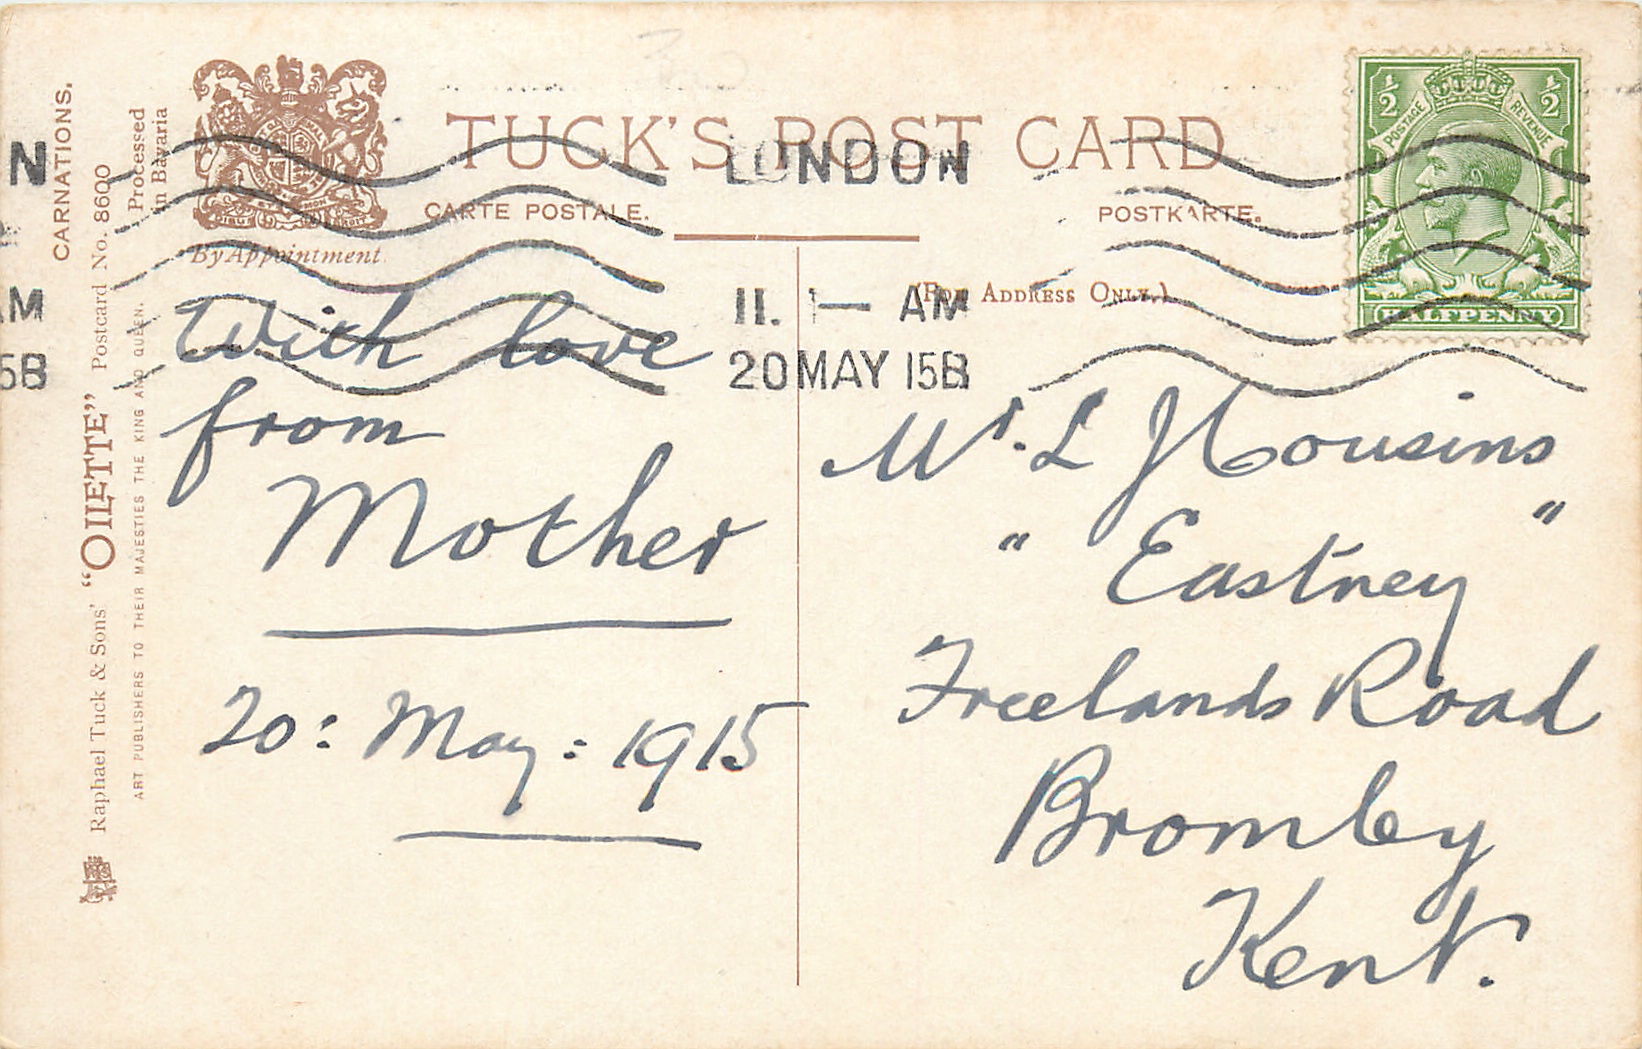 TUCK'S POST CARD
CARTE POSTALE.
POSTKARTE.
(For Address Only.)
By Appointment.
CARNATIONS.
Raphael Tuck & Sons' “OILETTE” Postcard No. 8600
ART PUBLISHERS TO THEIR MAJESTIES THE KING AND QUEEN.
Processed
in Bavaria
LONDON
11. 1— AM
20 MAY 15B
N
AM
5B
1/2
1/2
POSTAGE
REVENUE
HALFPENNY
With love
from
Mother
20: May: 1915
Mr. L J Cousins
" Eastney "
Freelands Road
Bromley
Kent.